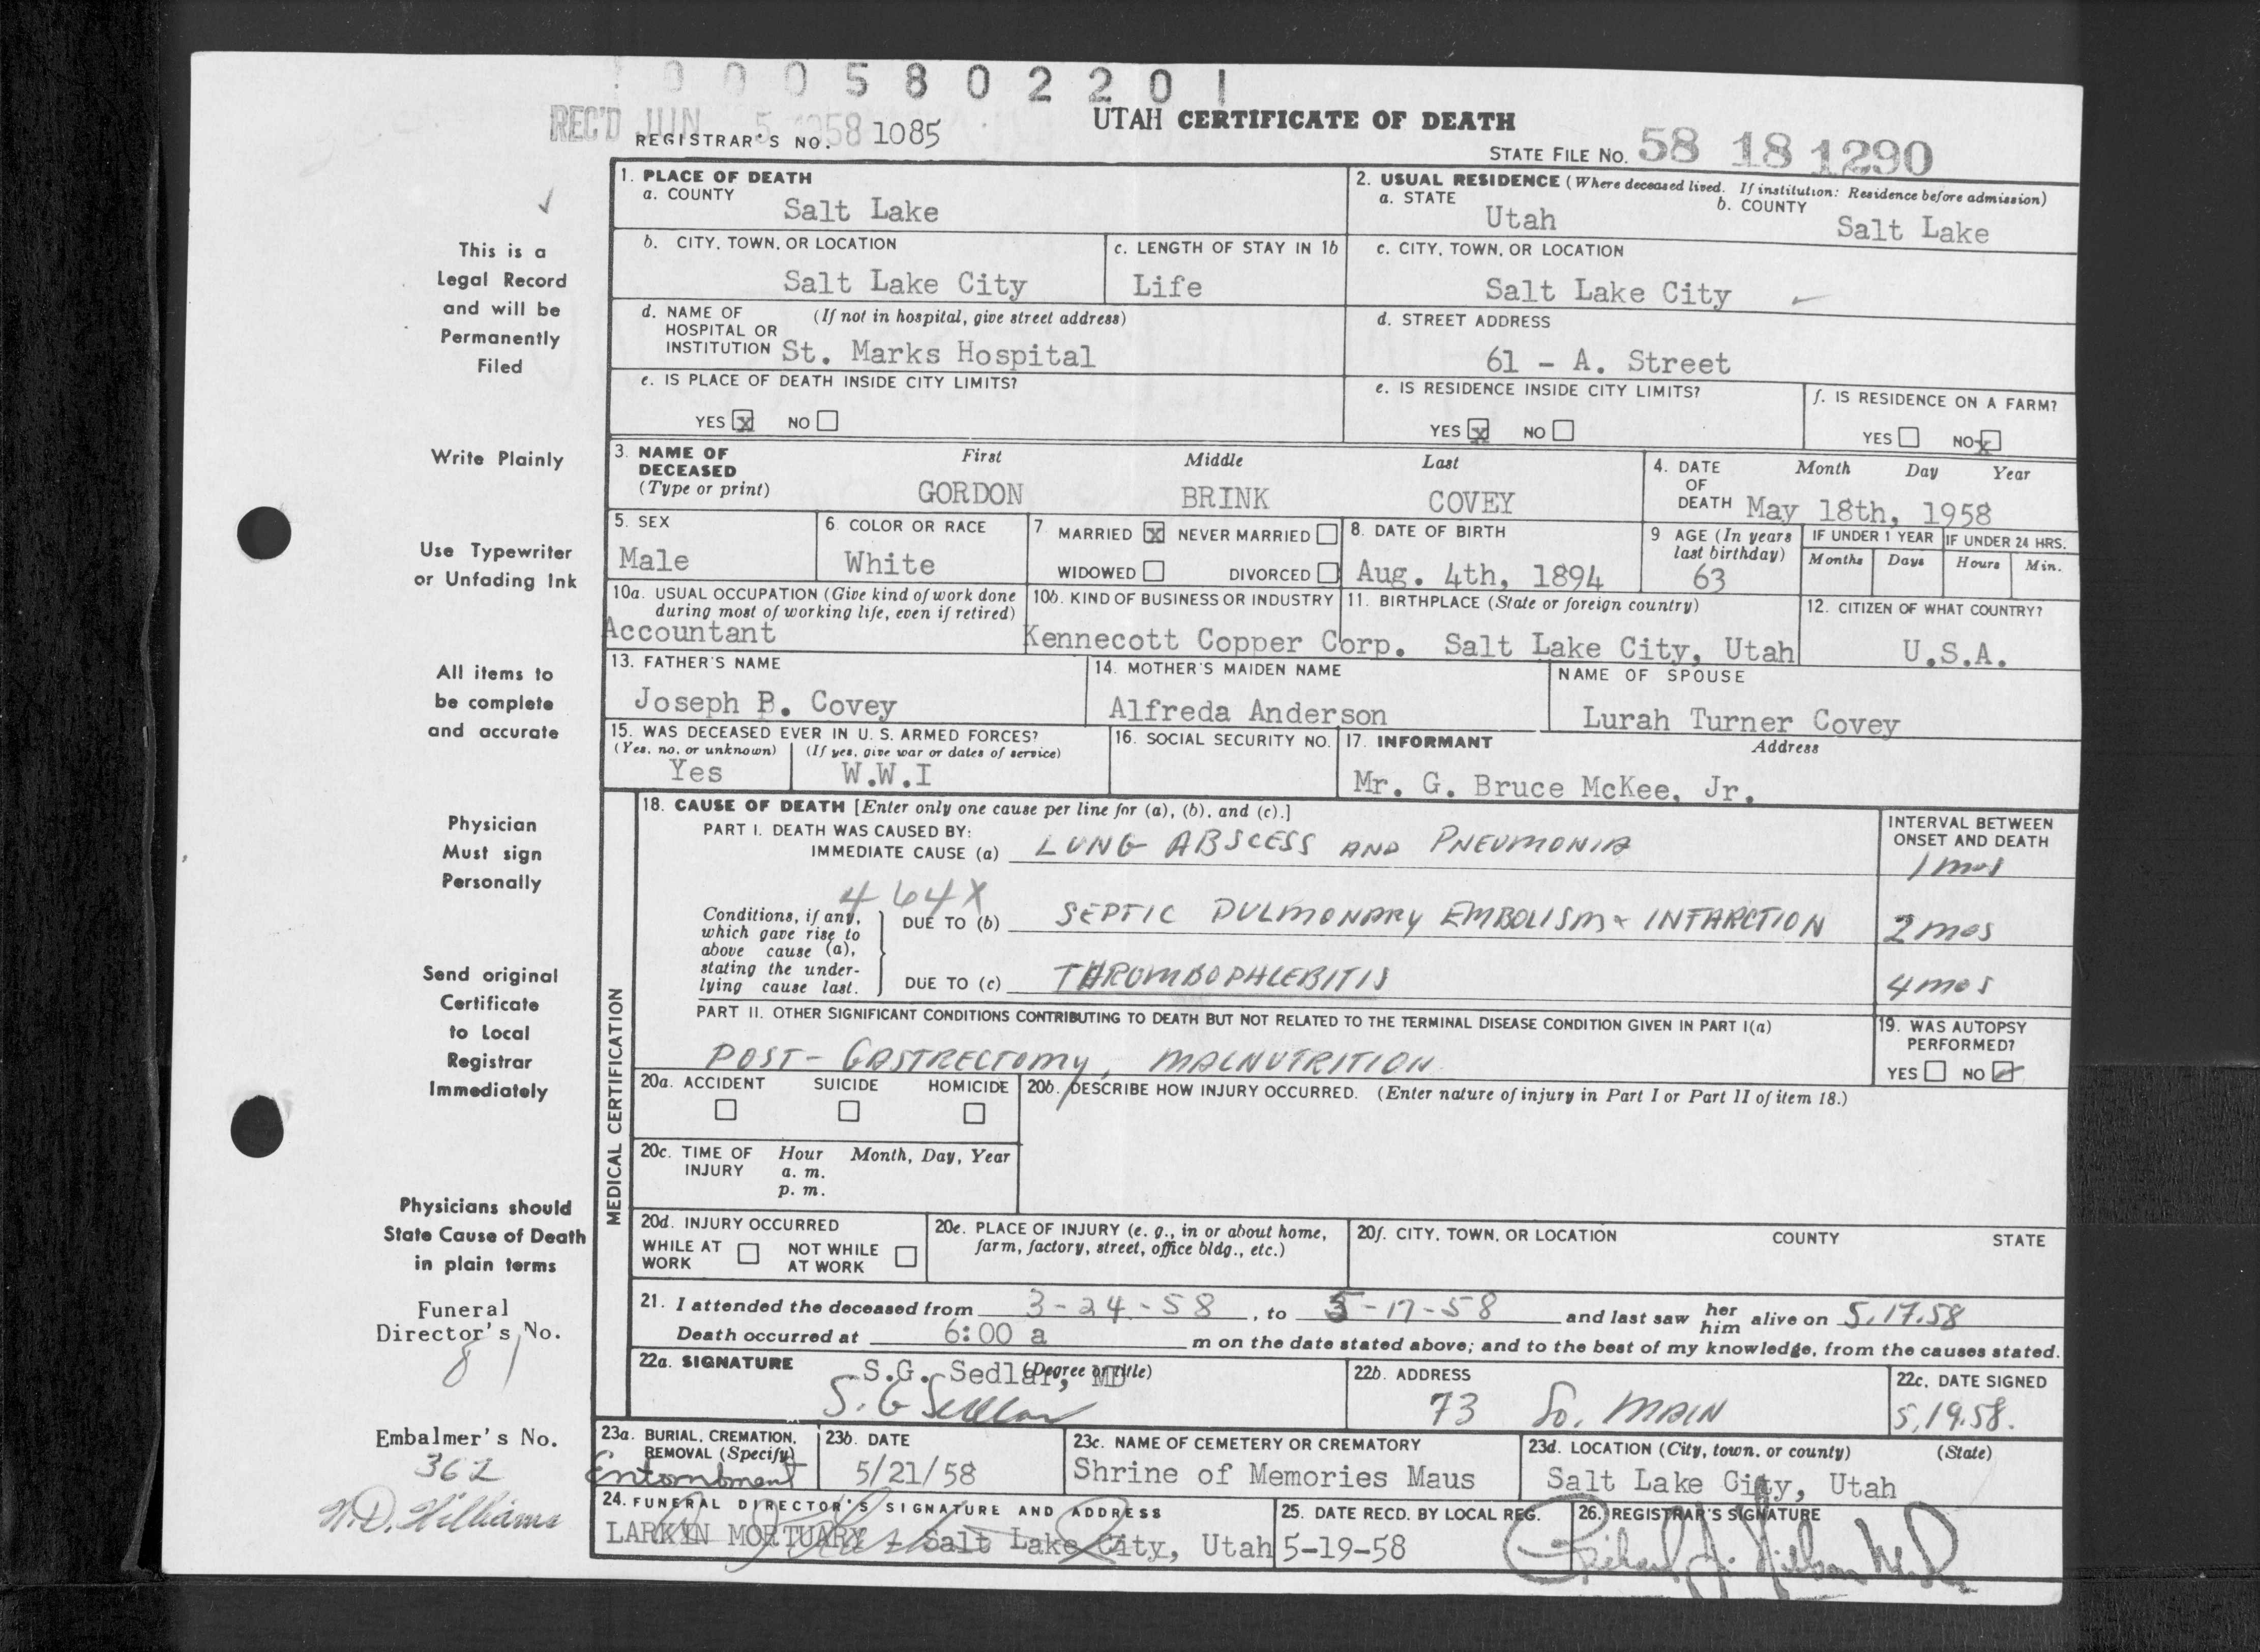 0 0 0 5 8 0 2 2 0 1
REC'D JUN 5 1958
REGISTRAR'S NO. 1085
UTAH CERTIFICATE OF DEATH
STATE FILE NO. 58 18 1290
This is a
Legal Record
and will be
Permanently
Filed
Write Plainly
Use Typewriter
or Unfading Ink
All items to
be complete
and accurate
Physician
Must sign
Personally
Send original
Certificate
to Local
Registrar
Immediately
Physicians should
State Cause of Death
in plain terms
Funeral
Director's No.
81
Embalmer's No.
362
N.D. Williams
1. PLACE OF DEATH
a. COUNTY
Salt Lake
2. USUAL RESIDENCE (Where deceased lived. If institution: Residence before admission)
a. STATE
Utah
b. COUNTY
Salt Lake
b. CITY, TOWN, OR LOCATION
Salt Lake City
c. LENGTH OF STAY IN 1b
Life
c. CITY, TOWN, OR LOCATION
Salt Lake City
d. NAME OF (If not in hospital, give street address)
HOSPITAL OR
INSTITUTION St. Marks Hospital
d. STREET ADDRESS
61 - A. Street
e. IS PLACE OF DEATH INSIDE CITY LIMITS?
YES X NO
e. IS RESIDENCE INSIDE CITY LIMITS?
YES X NO
f. IS RESIDENCE ON A FARM?
YES NO X
3. NAME OF DECEASED (Type or print)
First Middle Last
GORDON BRINK COVEY
4. DATE OF DEATH
Month Day Year
May 18th, 1958
5. SEX
Male
6. COLOR OR RACE
White
7. MARRIED X NEVER MARRIED
WIDOWED DIVORCED
8. DATE OF BIRTH
Aug. 4th, 1894
9 AGE (In years last birthday)
63
IF UNDER 1 YEAR
Months Days
IF UNDER 24 HRS.
Hours Min.
10a. USUAL OCCUPATION (Give kind of work done
during most of working life, even if retired)
Accountant
10b. KIND OF BUSINESS OR INDUSTRY
Kennecott Copper Corp.
11. BIRTHPLACE (State or foreign country)
Salt Lake City, Utah
12. CITIZEN OF WHAT COUNTRY?
U.S.A.
13. FATHER'S NAME
Joseph B. Covey
14. MOTHER'S MAIDEN NAME
Alfreda Anderson
NAME OF SPOUSE
Lurah Turner Covey
15. WAS DECEASED EVER IN U. S. ARMED FORCES?
(Yes, no, or unknown) (If yes, give war or dates of service)
Yes W.W.I
16. SOCIAL SECURITY NO.
17. INFORMANT Address
Mr. G. Bruce McKee, Jr.
MEDICAL CERTIFICATION
18. CAUSE OF DEATH [Enter only one cause per line for (a), (b), and (c).]
PART I. DEATH WAS CAUSED BY:
IMMEDIATE CAUSE (a) LUNG ABSCESS AND PNEUMONIA
INTERVAL BETWEEN
ONSET AND DEATH
1 mos
464X
Conditions, if any,
which gave rise to
above cause (a),
stating the under-
lying cause last.
DUE TO (b) SEPTIC PULMONARY EMBOLISM & INFARCTION
2 mos
DUE TO (c) THROMBOPHLEBITIS
4 mos
PART II. OTHER SIGNIFICANT CONDITIONS CONTRIBUTING TO DEATH BUT NOT RELATED TO THE TERMINAL DISEASE CONDITION GIVEN IN PART I(a)
POST-GASTRECTOMY, MALNUTRITION
19. WAS AUTOPSY
PERFORMED?
YES NO
20a. ACCIDENT SUICIDE HOMICIDE
20b. DESCRIBE HOW INJURY OCCURRED. (Enter nature of injury in Part I or Part II of item 18.)
20c. TIME OF INJURY
Hour Month, Day, Year
a. m.
p. m.
20d. INJURY OCCURRED
WHILE AT WORK NOT WHILE AT WORK
20e. PLACE OF INJURY (e. g., in or about home,
farm, factory, street, office bldg., etc.)
20f. CITY, TOWN, OR LOCATION COUNTY STATE
21. I attended the deceased from 3-24-58, to 5-17-58 and last saw her him alive on 5.17.58
Death occurred at 6:00 a m on the date stated above; and to the best of my knowledge, from the causes stated.
22a. SIGNATURE (Degree or title)
S.G. Sedlar, MD
S. G Sedlar
22b. ADDRESS
73 So. MAIN
22c. DATE SIGNED
5.19.58.
23a. BURIAL, CREMATION,
REMOVAL (Specify)
Entombment
23b. DATE
5/21/58
23c. NAME OF CEMETERY OR CREMATORY
Shrine of Memories Maus
23d. LOCATION (City, town, or county) (State)
Salt Lake City, Utah
24. FUNERAL DIRECTOR'S SIGNATURE AND ADDRESS
LARKIN MORTUARY - Salt Lake City, Utah
25. DATE RECD. BY LOCAL REG.
5-19-58
26. REGISTRAR'S SIGNATURE